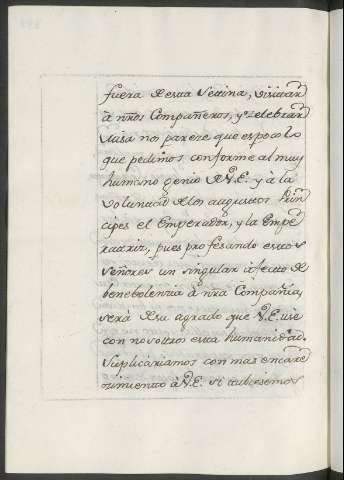 fuera de esta Settina, visitar
à nr̃os Compañeros, y zelebrar
Missa nos pareze que es poco lo
que pedimos conforme al muy
humano genio de V.E. y à la
voluntad de los augustos Prin
cipes el Emperador, y la Empe
ratriz, pues profesando estos
Señores un singular afecto de
benebolenzia à nr̃a Compañia,
serà de su agrado que V.E. use
con nosotros esta humanidad.
Suplicariamos con mas encare
zimiento à V.E. si tubiesemos